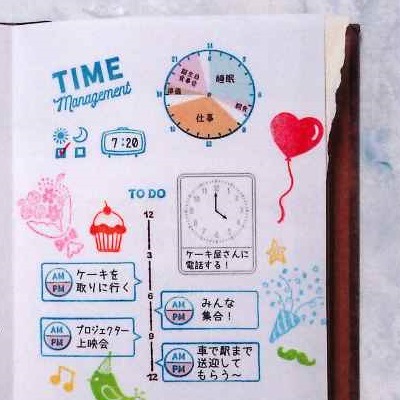 TIME
Management
21
18
15
12
睡眠
朝食
仕事
準備
7:20
TO DO
12
3
6
9
12
ケーキ屋さんに
電話する!
AM
PM
ケーキを
取りに行く
AM
PM
みんな
集合!
AM
PM
プロジェクター
上映会
AM
PM
車で駅まで
送迎して
もらう〜